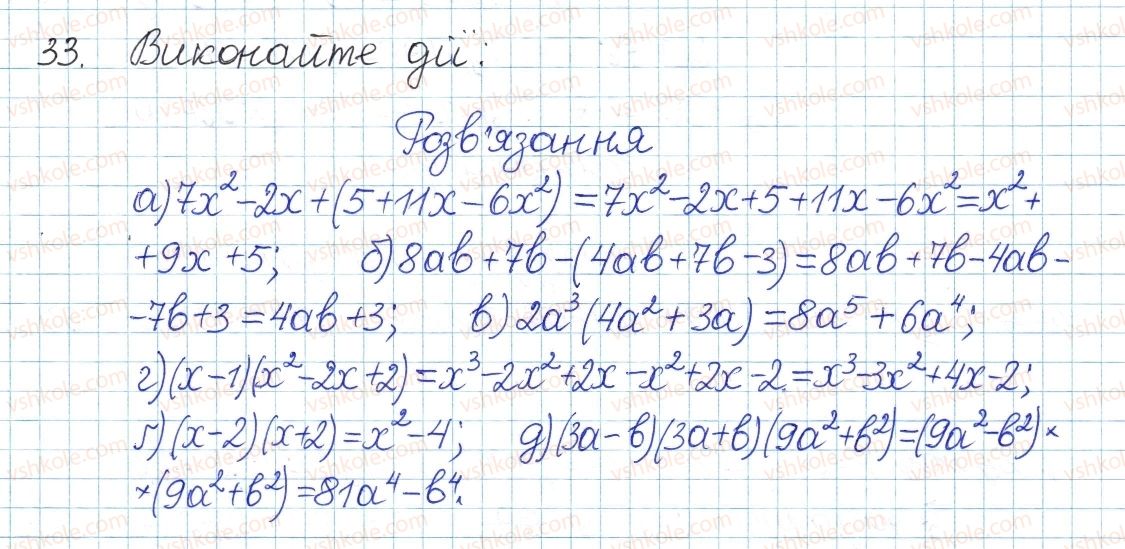 33. Виконайте дії:
Розв'язання
а) 7x² - 2x + (5 + 11x - 6x²) = 7x² - 2x + 5 + 11x - 6x² = x² +
+ 9x + 5; б) 8ab + 7b - (4ab + 7b - 3) = 8ab + 7b - 4ab -
- 7b + 3 = 4ab + 3; в) 2a³(4a² + 3a) = 8a⁵ + 6a⁴;
г) (x - 1)(x² - 2x + 2) = x³ - 2x² + 2x - x² + 2x - 2 = x³ - 3x² + 4x - 2;
ґ) (x - 2)(x + 2) = x² - 4; д) (3a - b)(3a + b)(9a² + b²) = (9a² - b²) ×
× (9a² + b²) = 81a⁴ - b⁴.